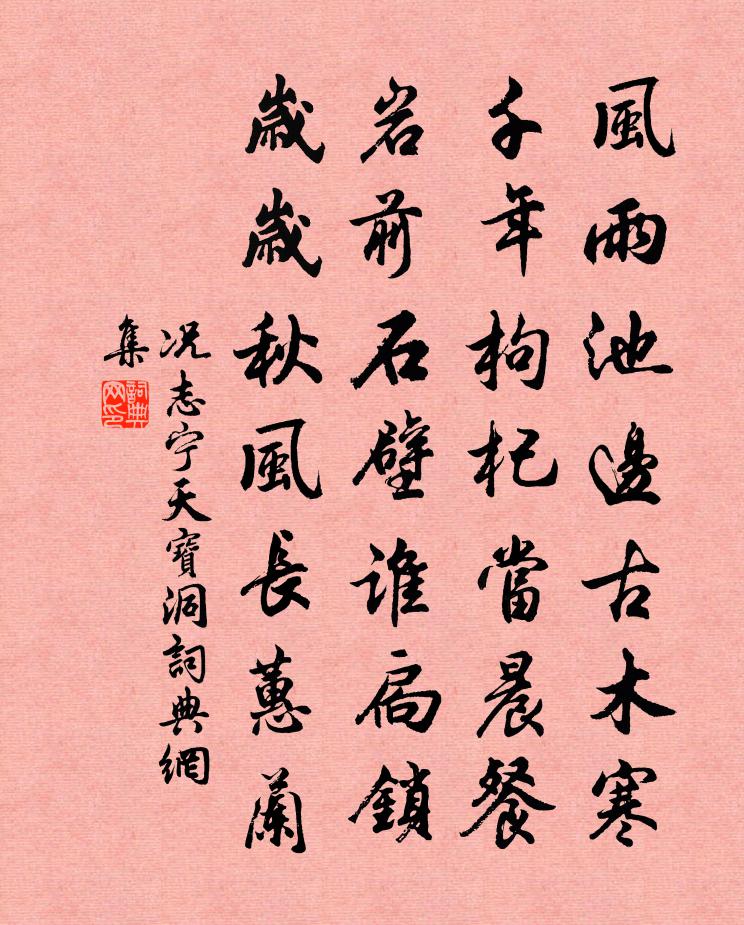 風雨池邊古木寒
千年枸杞當晨餐
岩前石壁誰扃鎖
歲歲秋風長蕙蘭
况志宁天寶洞詞典網
集
詞典網印